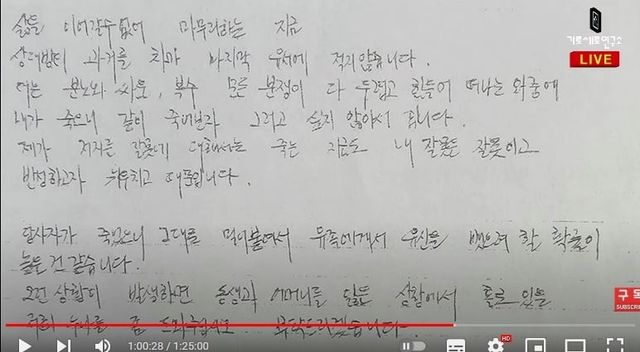 삶을 이어갈수 없어 마무리하는 지금
상대방의 과거를 마지막 유서에 적지않습니다.
더는 분노와 싸움, 복수 모든 분쟁이 다 두렵고 힘들어 떠나는 와중에
내가 죽으니 같이 죽어보자 그러고 싶지 않아서 입니다.
제가 저지른 잘못에 대해서는 죽는 지금도 내 잘못은 잘못이고
반성하고자 뉘우치고 때문입니다.
당사자가 죽었으니 그대를 유족에게서 유산을 뺏으려 할 확률이
높은 것 같습니다.
그런 상황이 발생하면 동생과 어머니를 잃은 상황에서 홀로 있을
저희 누나를 좀 도와주십사 부탁드리겠습니다.
가로세로연구소
LIVE
구독
SUBSCRIBE
1:00:28 / 1:25:00
HD